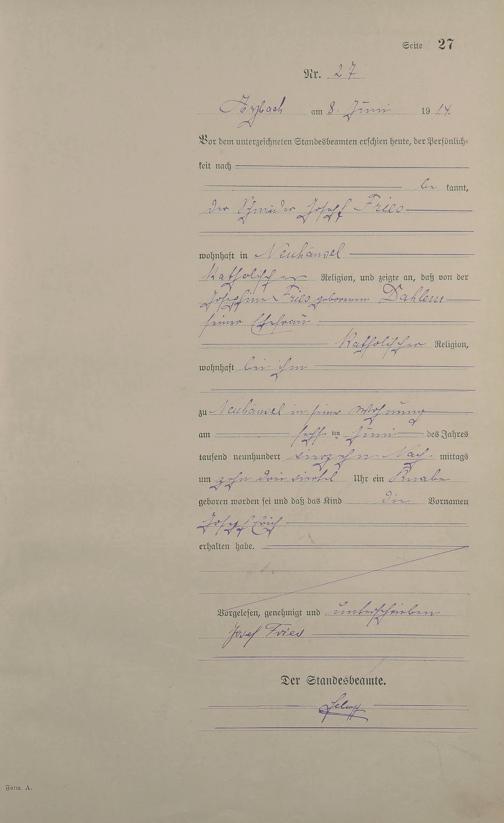 Seite 27
Nr. 27
am 8. Juni 1914
Vor dem unterzeichneten Standesbeamten erschien heute, der Persönlich-
keit nach
be kannt,
der Schneider Joseph Fries
wohnhaft in Neuhäusel
Katholischer Religion, und zeigte an, daß von der
Josephine Fries geborenen Dahlem
seiner Ehefrau
Katholischer Religion,
wohnhaft bei ihm
zu Neuhäusel in seiner Wohnung
am ten Juni des Jahres
tausend neunhundert vierzehn Nach mittags
um zehn drei viertel Uhr ein Knabe
geboren worden sei und daß das Kind die Vornamen
Joseph Erich
erhalten habe.
Vorgelesen, genehmigt und unterschrieben
Josef Fries
Der Standesbeamte.
Form. A.